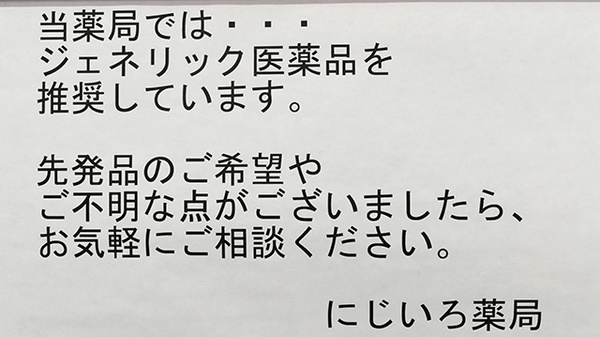 当薬局では・・・
ジェネリック医薬品を
推奨しています。
先発品のご希望や
ご不明な点がございましたら、
お気軽にご相談ください。
にじいろ薬局